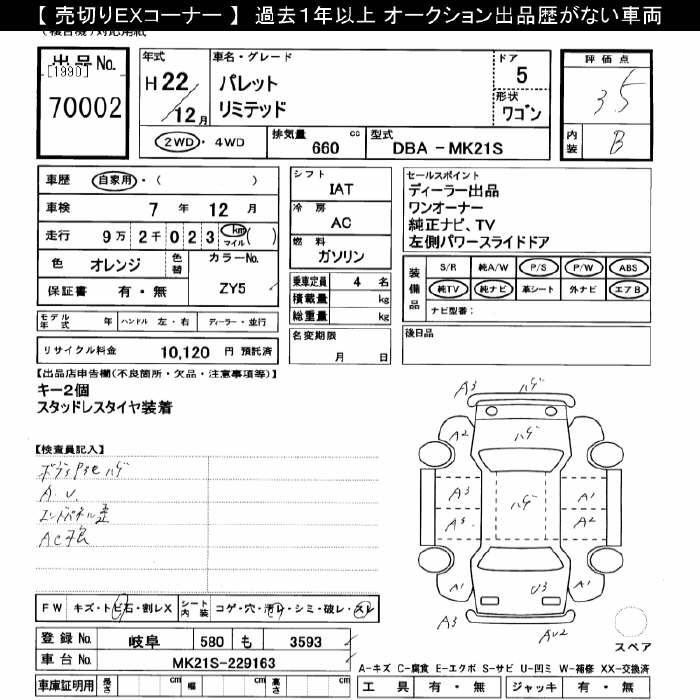 【 売切りEXコーナー 】 過去1年以上 オークション出品歴がない車両
出品No.
[1990]
70002
年式
H 22 / 12 月
車名・グレード
パレット
リミテッド
ドア
5
形状
ワゴン
2WD ・ 4WD
排気量
660 cc
型式
DBA - MK21S
評価点
3.5
内装
B
車歴 自家用 ・( )
車検 7 年 12 月
走行 9万 2千 0 2 3 km マイル ( )
色 オレンジ 色替 カラーNo. ZY5
保証書 有 ・ 無
モデル年式 年 ハンドル 左・右 ディーラー・並行
リサイクル料金 10,120 円 預託済
シフト
IAT
冷房
AC
燃料
ガソリン
乗車定員 4 名
積載量 kg
総重量 kg
名変期限
月 日
セールスポイント
ディーラー出品
ワンオーナー
純正ナビ、TV
左側パワースライドドア
装備品
S/R 純A/W P/S P/W ABS
純TV 純ナビ 革シート 外ナビ エアB
ナビ型番：
後日品
【出品店申告欄(不良箇所・欠品・注意事項等)】
キー2個
スタッドレスタイヤ装着
【検査員記入】
A.U.
AC不良
FW キズ・トビ石・割レX シート内装 コゲ・穴・汚レ・シミ・破レ・スレ
登録No. 岐阜 580 も 3593
車台No. MK21S-229163
車庫証明用 長さ cm 幅 cm 高さ cm
A3 ハゲ
A2 ハゲ
A3 ハゲ A1
A3 A2
A1 U3 A1
A3 AU2
スペア
A-キズ C-腐食 E-エクボ S-サビ U-凹ミ W-補修 XX-交換済
工具 有 ・ 無 ジャッキ 有 ・ 無